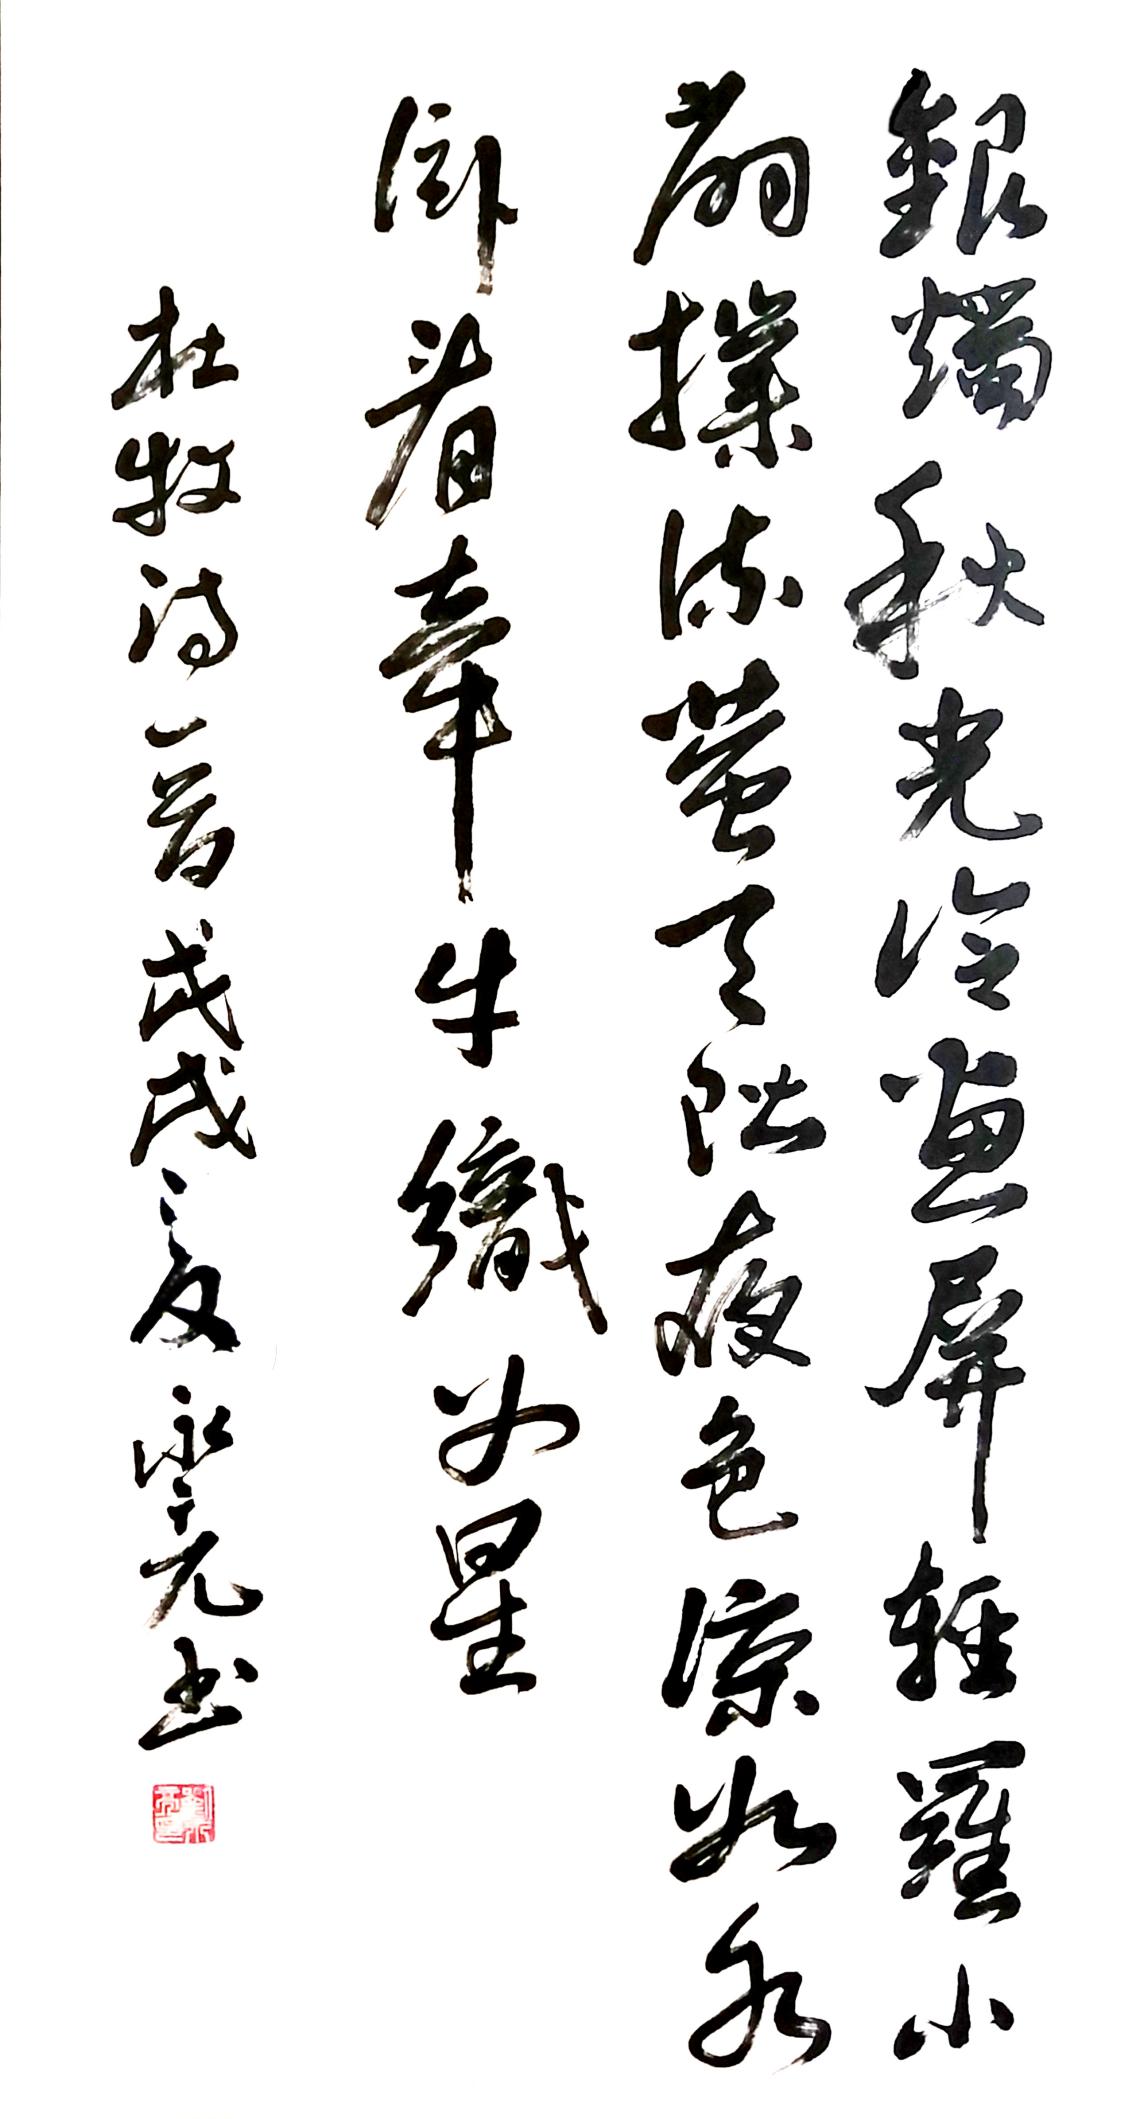 銀燭秋光冷畫屏輕羅小
扇撲流螢天階夜色涼如水
卧看牽牛織女星
杜牧詩一首戊戌之夏永元書